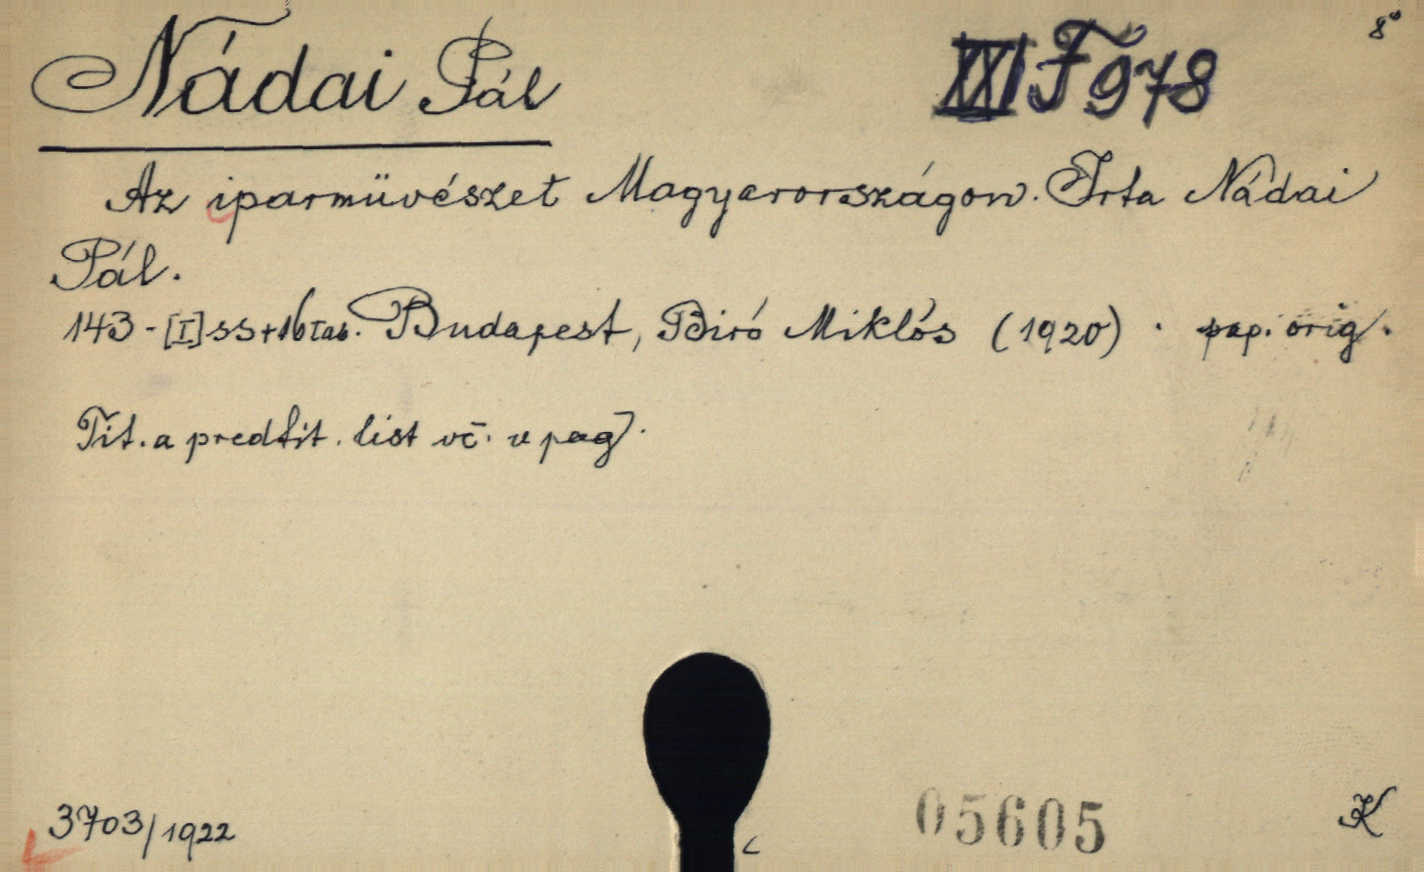 8°
Nádai Pál
XXI F 978
Az iparmüvészet Magyarországon. Irta Nádai
Pál.
143-[I]ss+16 tab. Budapest, Biró Miklós (1920). pap. orig.
Tit. a predtit. list vč. v pag.
3703/1922
05605
K